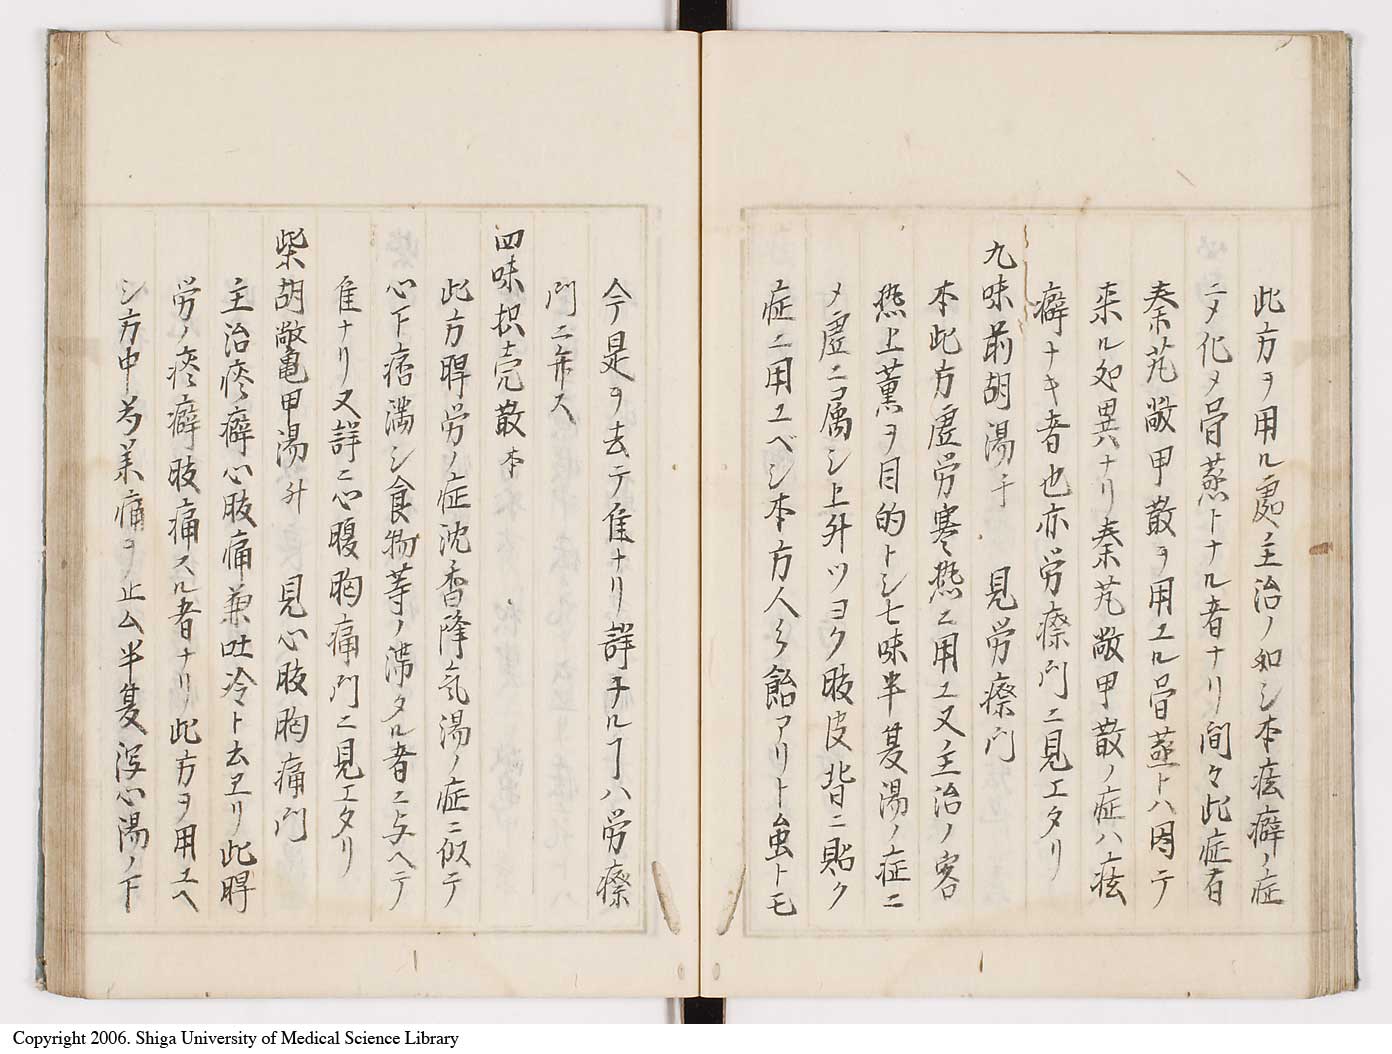 此方ヲ用ル處主治ノ如シ本痃癖ノ症
ニメ化メ骨蒸トナル者ナリ間々此症有
秦艽鼈甲散ヲ用ユル骨蒸トハ因テ
来ル処異ナリ秦艽鼈甲散ノ症ハ痃
癖ナキ者也亦労瘵門ニ見エタリ
九味前胡湯千 見労瘵門
本此方虚労寒熱ニ用ユ又主治ノ客
熱上薫ヲ目的トシ七味半夏湯ノ症ニ
メ虚ニ属シ上升ツヨク肢皮背ニ貼ク
症ニ用ユベシ本方人ミ飴アリト虫トモ
今是ヲ去テ隹ナリ詳ナルヿハ労瘵
門ニ弁ス
四味枳壳散本
此方脾労ノ症沈香降気湯ノ症ニ似テ
心下痞満シ食物等ノ滞タル者ニ与ヘテ
隹ナリ又詳ニ心腹胸痛門ニ見エタリ
柴胡鼈甲湯升 見心肢胸痛門
主治痃癖心肢痛兼吐冷ト去ヱリ此脾
労ノ痃癖肢痛スル者ナリ此方ヲ用ユヘ
シ方中為業痛ヲ止ム半夏瀉心湯ノ下
Copyright 2006. Shiga University of Medical Science Library